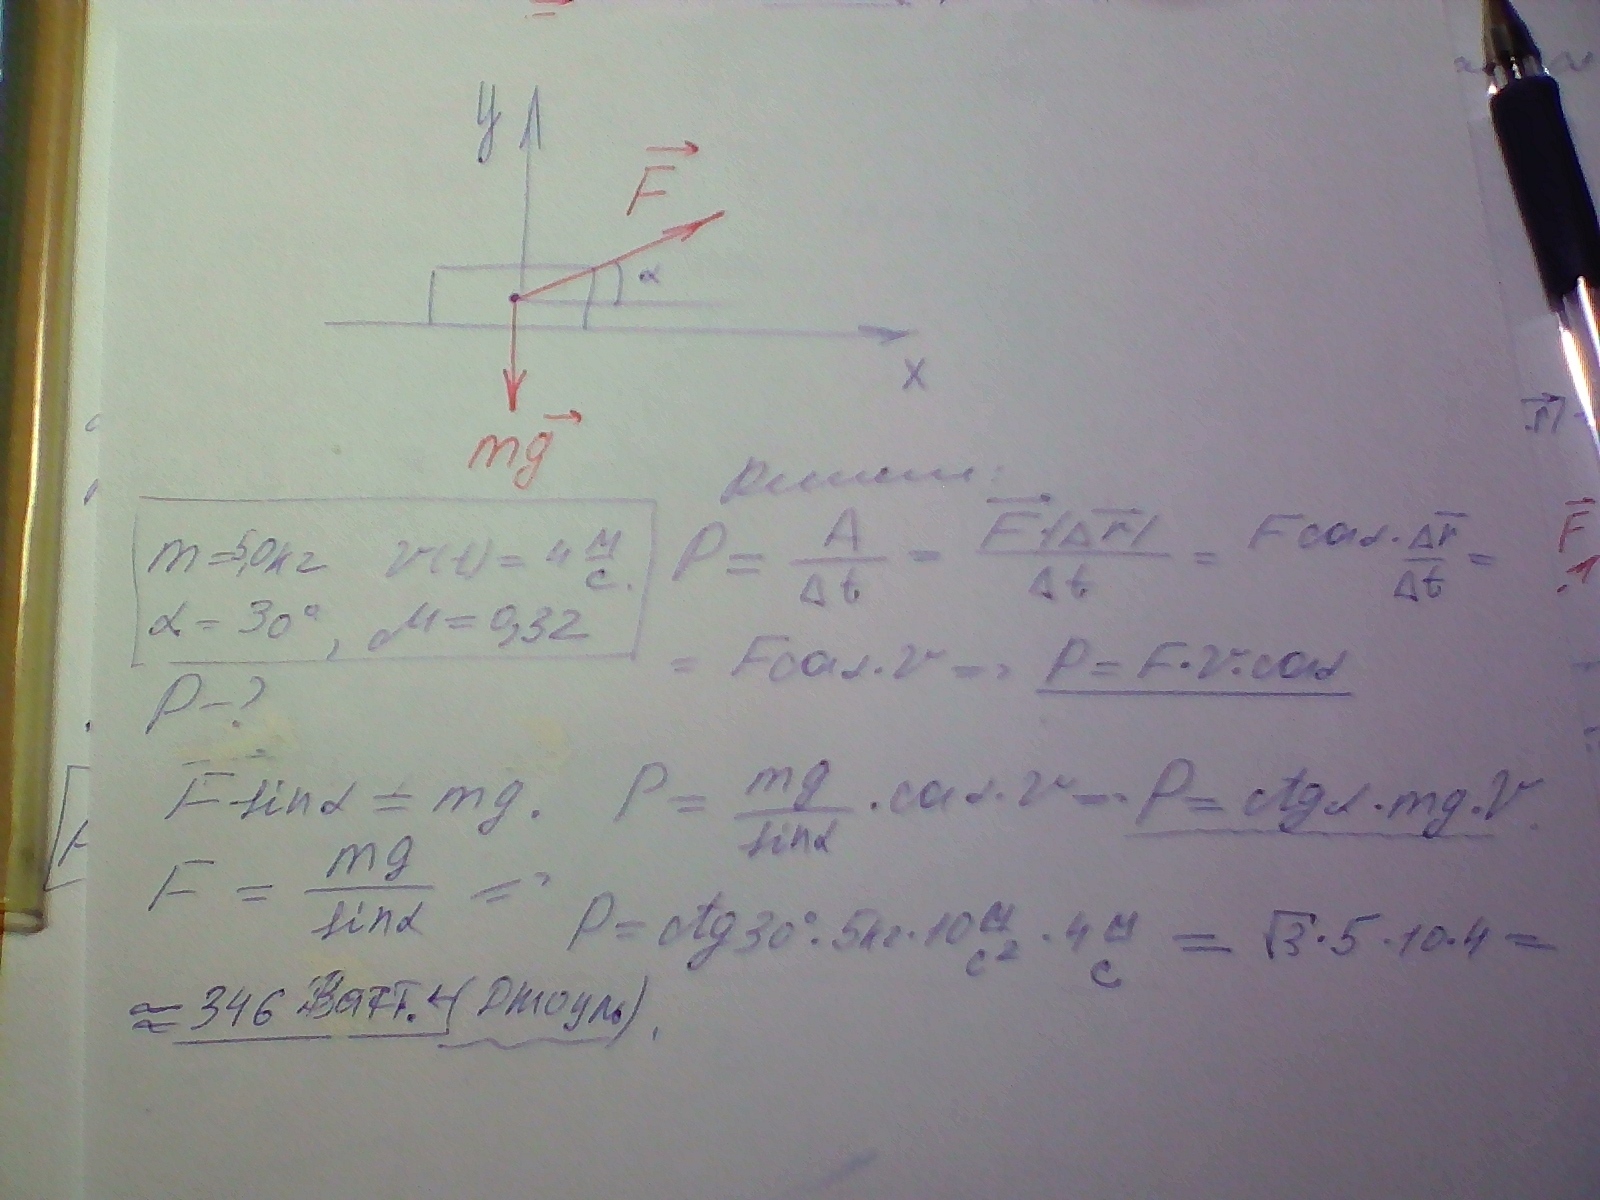 y
F
α
x
mg
Решение:
m=5,0кг v(t)=4 м/с.
α=30°, μ=0,32
P-?
P = A/Δt = F|Δr|/Δt = Fcosα·Δr/Δt =
= Fcosα·v => P=F·v·cosα
F sinα = mg.
F = mg/sinα =>
P = mg/sinα · cosα·v => P = ctgα·mg·v.
P = ctg30°·5кг·10 м/с² · 4 м/с = √3·5·10·4 =
≈ 346 Ватт.ч (Джоуль).
F